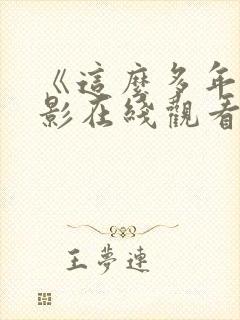 《這麼多年
影在綫觀看
王夢連